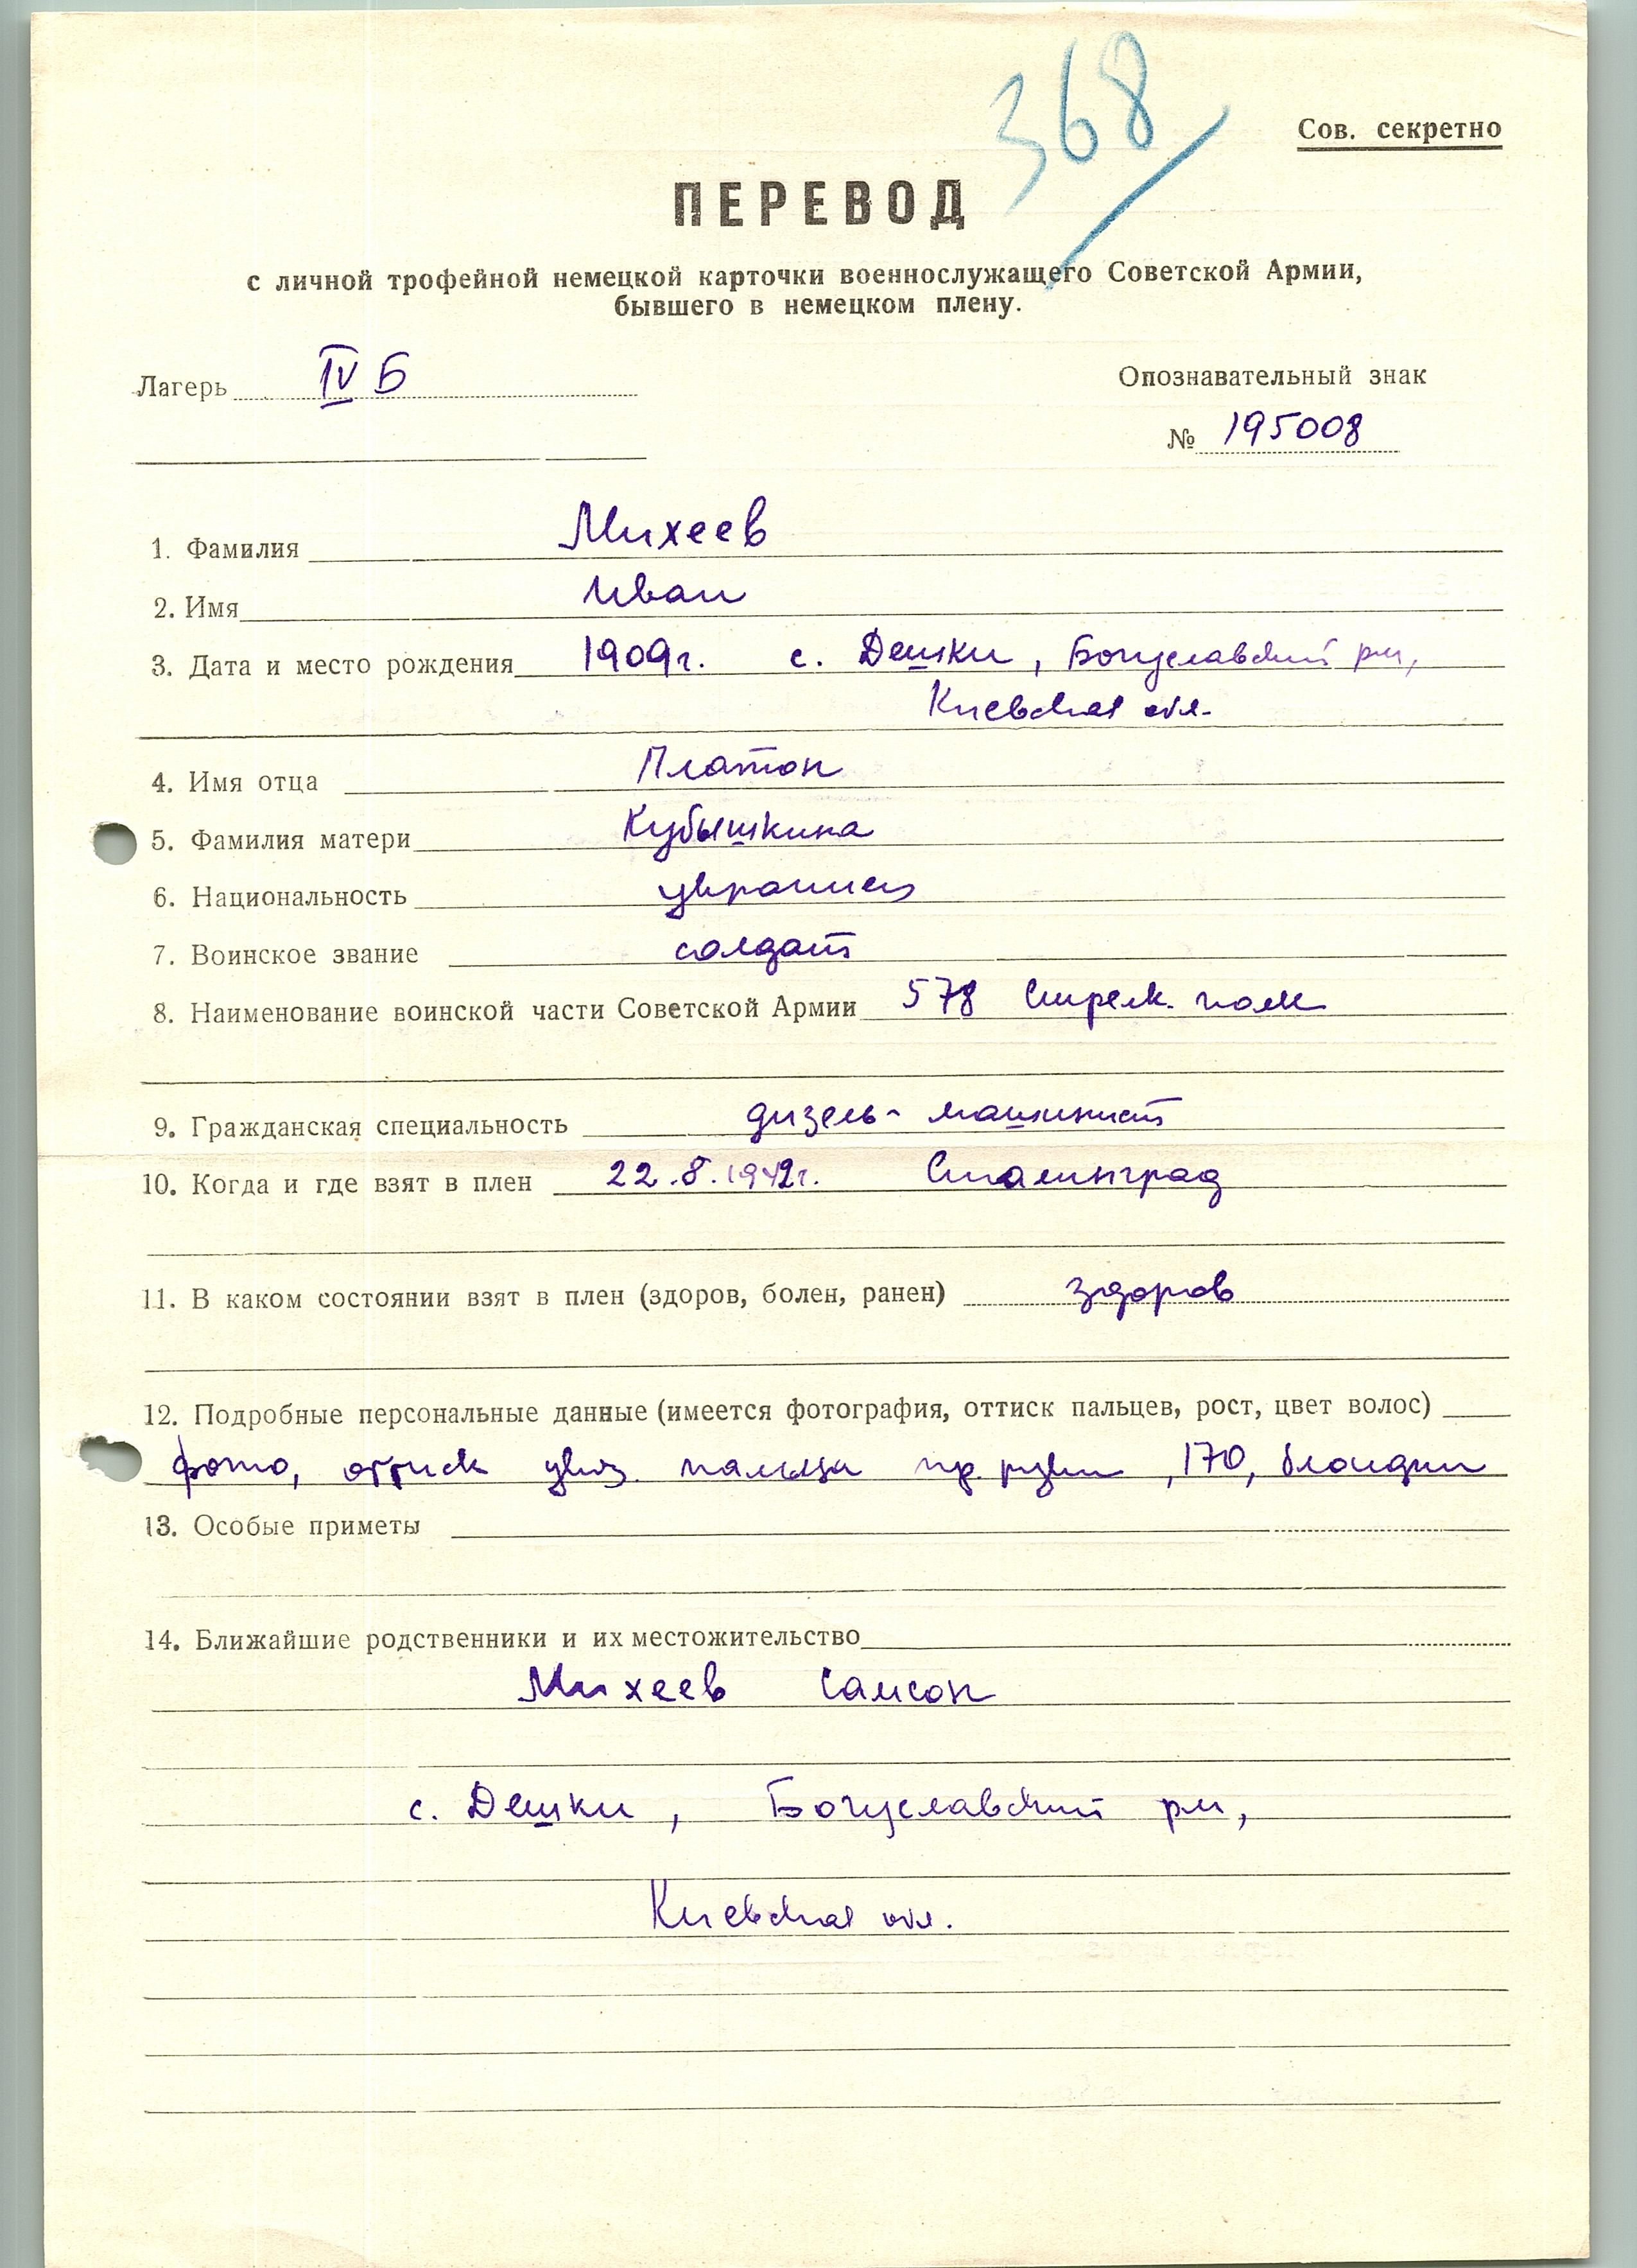 368
Сов. секретно
ПЕРЕВОД
с личной трофейной немецкой карточки военнослужащего Советской Армии,
бывшего в немецком плену.
Лагерь IV Б
Опознавательный знак
№ 195008
1. Фамилия Михеев
2. Имя Иван
3. Дата и место рождения 1909г. с. Дешки, Богуславский рн,
Киевская обл.
4. Имя отца Платон
5. Фамилия матери Кубышкина
6. Национальность украинец
7. Воинское звание солдат
8. Наименование воинской части Советской Армии 578 Стрелк. полк
9. Гражданская специальность дизель-машинист
10. Когда и где взят в плен 22.8.1942г. Сталинград
11. В каком состоянии взят в плен (здоров, болен, ранен) здоров
12. Подробные персональные данные (имеется фотография, оттиск пальцев, рост, цвет волос)
фото, оттиск указ. пальца пр. руки, 170, блондин
13. Особые приметы
14. Ближайшие родственники и их местожительство
Михеев Самсон
с. Дешки, Богуславский рн,
Киевская обл.